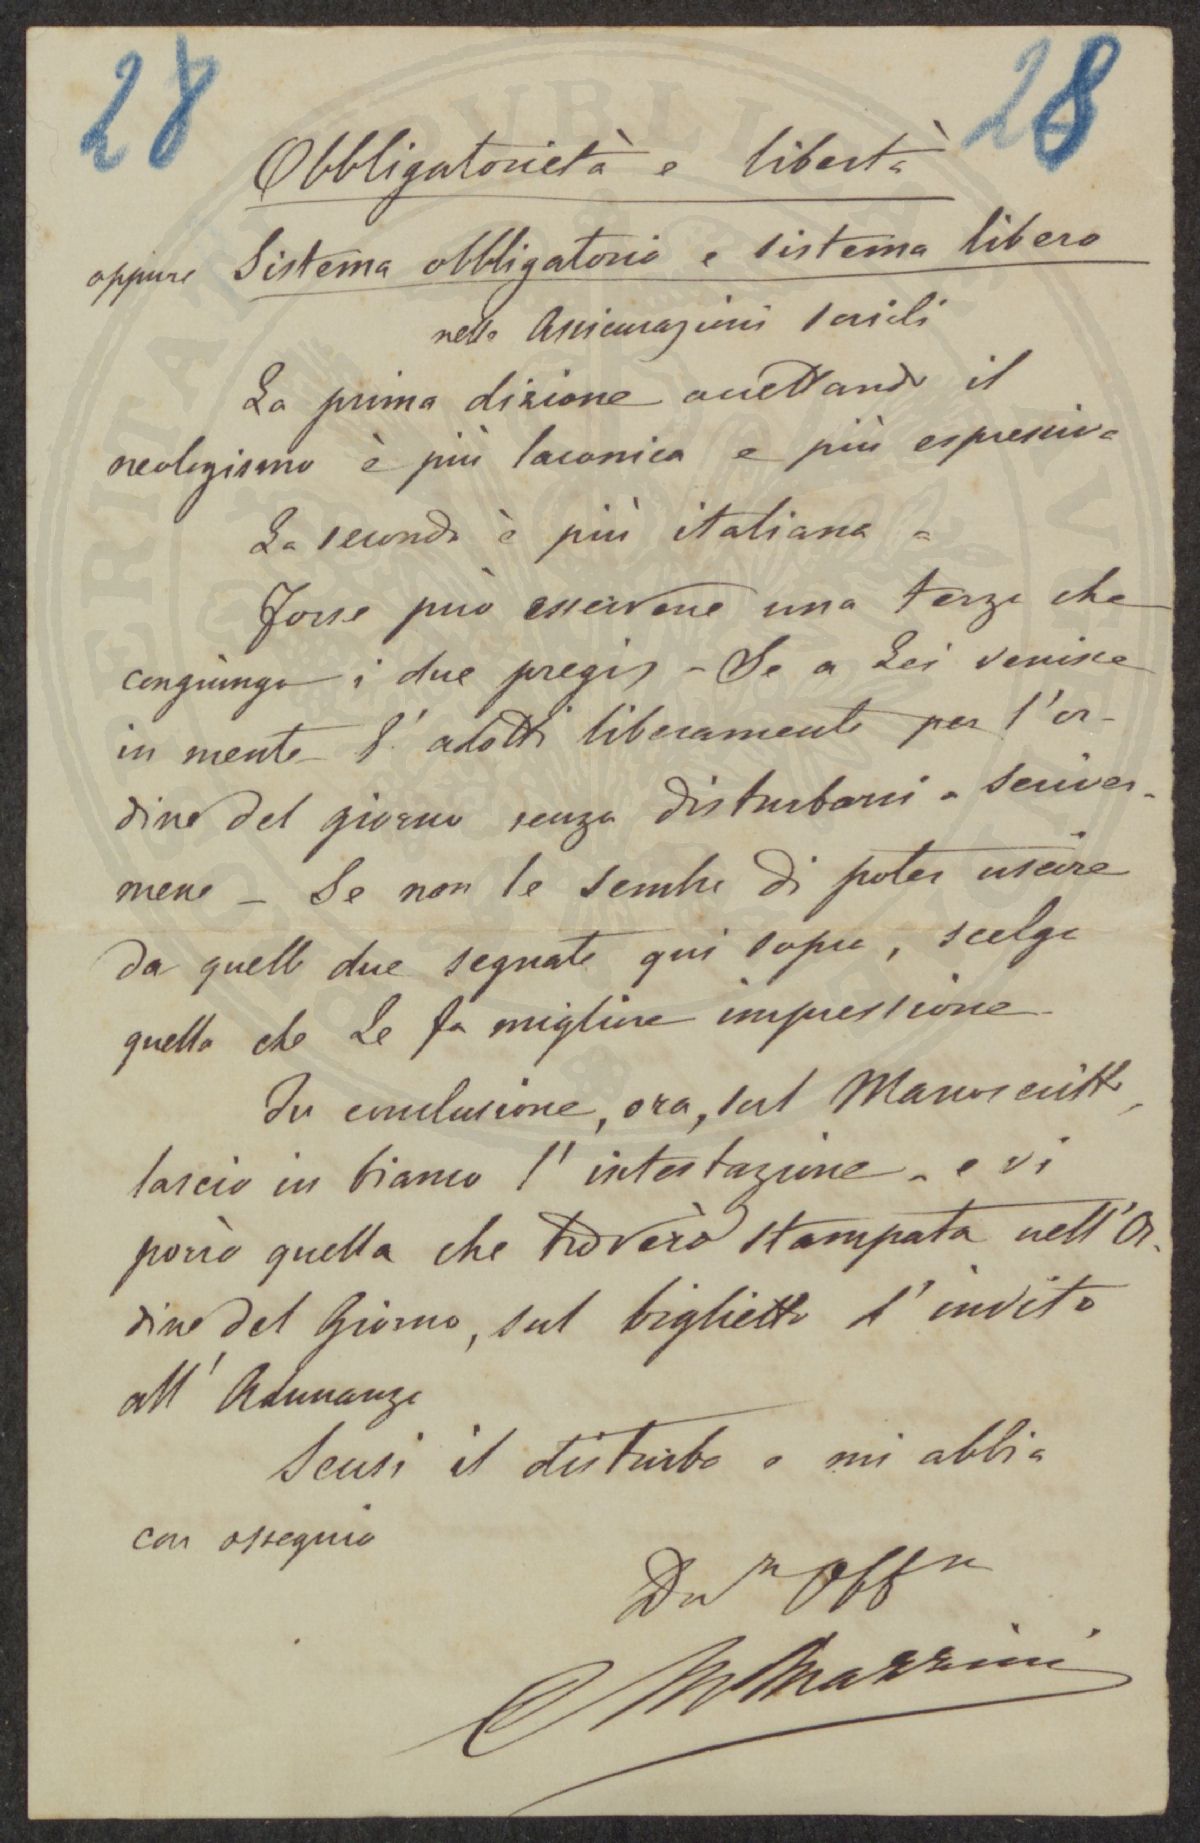 28 28
Obbligatorietà e libertà
oppure Sistema obbligatorio e sistema libero
nelle Assicurazioni sociali
La prima dizione accettando il
neologismo è più laconica e più espressiva
La seconda è più italiana -
Forse può esservene una terza che
congiunga i due pregi - Se a Lei venisse
in mente l'adotti liberamente per l'or-
dine del giorno senza disturbarsi a scriver-
mene - Se non le sembri di poter uscire
da quelle due segnate qui sopra, scelga
quella che Le fa migliore impressione -
In conclusione, ora, sul Manoscritto,
lascio in bianco l'intestazione - e vi
porrò quella che troverò stampata nell'Or-
dine del Giorno, sul biglietto d'invito
all'Adunanza
Scusi il disturbo e mi abbia
con ossequio
Dev.mo Obb.mo
Mazzini